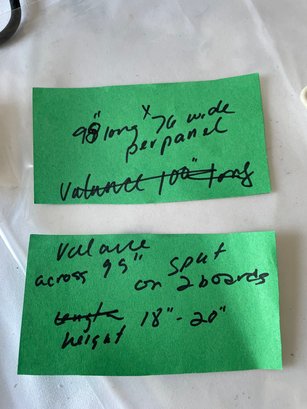 98" long x 76 wide
per panel
Valance 100" long
Valance
across 99" split
on 2 boards
Length 18"-20"
height